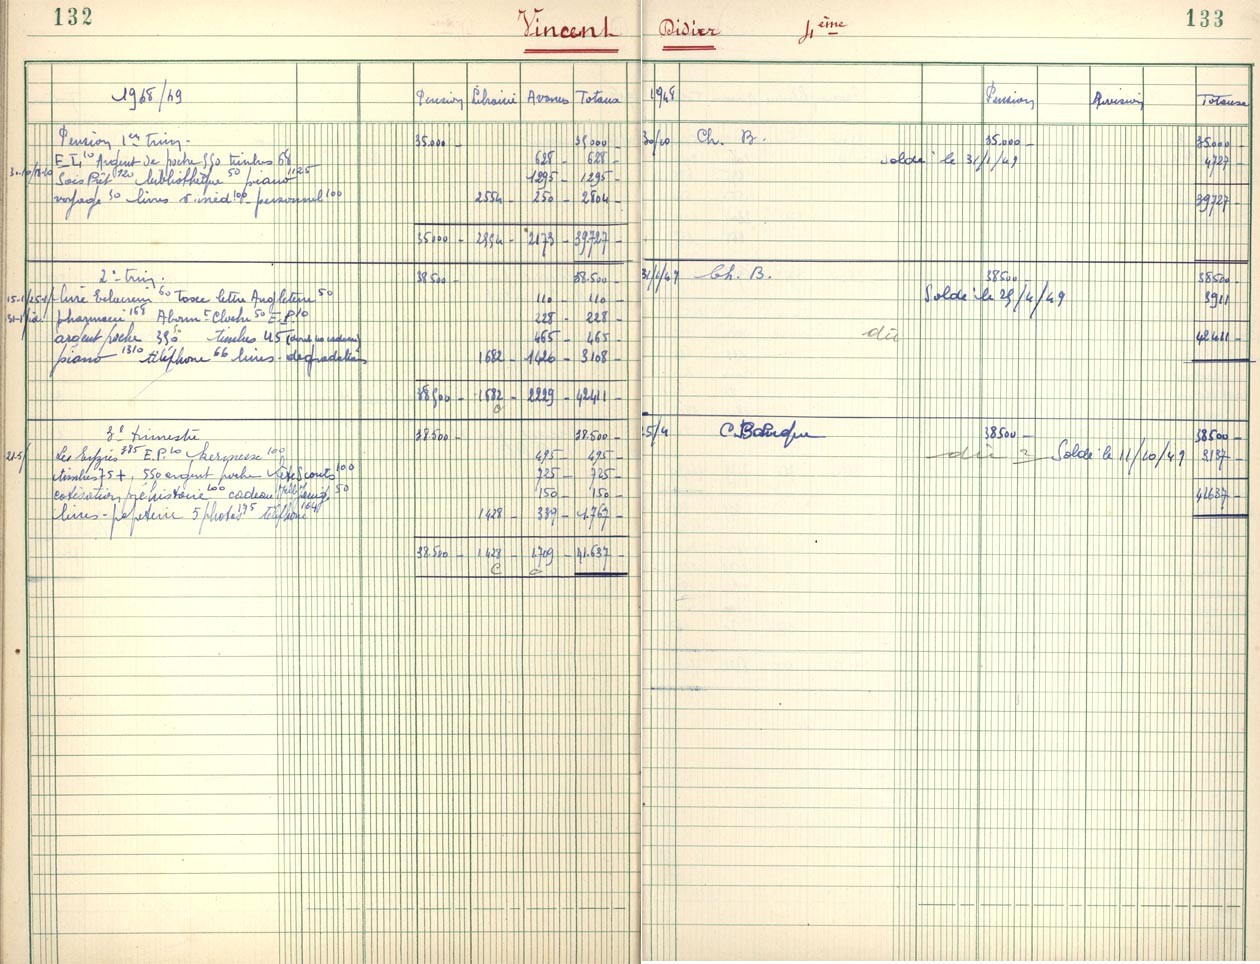 132
Vincent Didier 4ème
133
1948/49 Pension Librairie Avances Totaux
Pension 1er trim. 35.000 - 35.000 -
E.T. 10 Argent de poche 550 timbres 68 628 - 628 -
bibliothèque 50 piano 1125 1295 - 1295 -
voyage 50 livres 100 personnel 100 2554 - 250 - 2804 -
35.000 - 2554 - 2173 - 39.727 -
2e trim. 38.500 - 38.500 -
60 Taxe lettre Angleterre 50 110 - 110 -
pharmacie 168 Abonn. Cloche 50 E.P. 10 228 - 228 -
argent poche timbres 45 465 - 465 -
piano 1310 téléphone 66 livres - dégradations 1682 - 1426 - 3108 -
38.500 - 1682 2229 - 42411 -
3e trimestre 38.500 - 38.500 -
385 E.P. 10 kermesse 100 495 - 495 -
timbres 75 +, 550 argent poche Fête Scouts 100 725 - 725 -
cotisation préhistoire 100 cadeau 50 150 - 150 -
livres - papeterie 5 photos 175 téléphone 164 1428 - 339 - 1.767 -
38.500 - 1428 - 1.709 - 41.637 -
1948 Pension Révision Totaux
30/10 Ch. B. 35.000 - 35.000 -
soldé le 31/1/49 4727 -
39727 -
31/1/49 Ch. B. 38500 - 38500 -
Soldé le 25/4/49 3911 -
dû 42411 -
25/4 C. Banque 38500 - 38500 -
dû = Soldé le 11/10/49 3137 -
41637 -